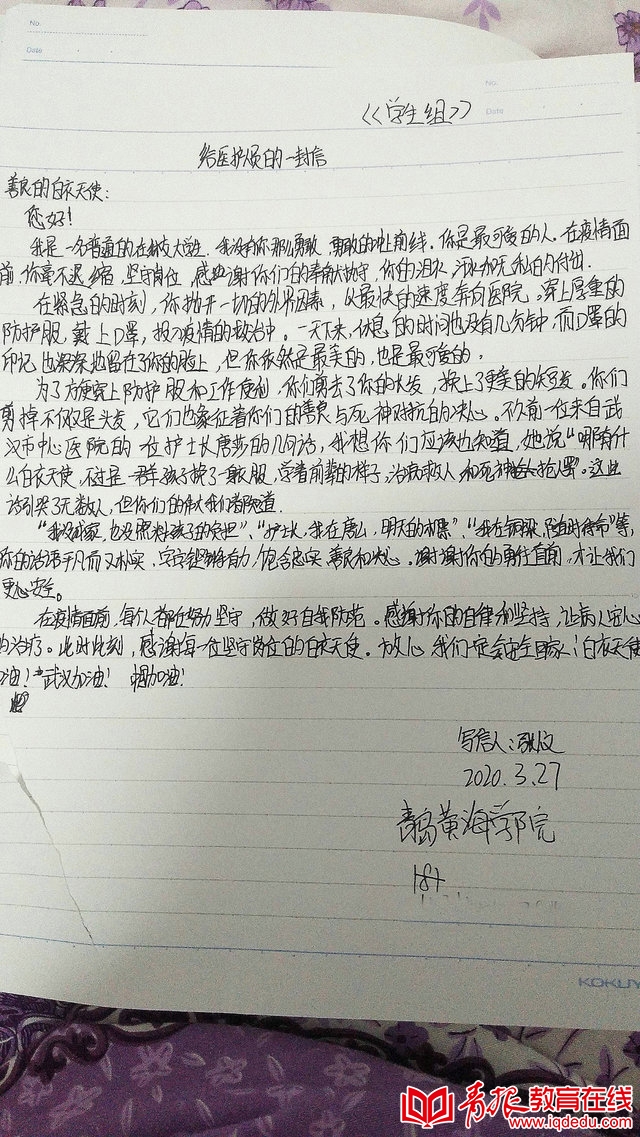 No.
Date
No.
Date
《学生组》
给医护人员的一封信
善良的白衣天使：
您好！
我是一名普通的在校大学生，我没有你那么勇敢，勇敢的冲上前线。你是最可爱的人。在疫情面
前，你毫不退缩，坚守岗位，感谢你们的奉献坚守，你的泪水、汗水和无私的付出。
在紧急的时刻，你抛开一切的外界因素，以最快的速度奔向医院。穿上厚重的
防护服，戴上口罩，投入疫情的救治中。一天下来，休息的时间也没有几分钟，而口罩的
印记也深深地留在了你的脸上，但你依然是最美的，也是最可爱的。
为了方便穿上防护服和工作便利，你们剪去了你的长发，换上了更美的短发。你们
剪掉不仅仅是头发，它们也象征着你们的善良与死神对抗的决心。不久前一位来自武
汉市中心医院的一位护士长唐莎的几句话，我想你们应该也知道，她说“哪有什
么白衣天使，不过是一群孩子换了一身衣服，学着前辈的样子，治病救人，和死神抢人罢”。这些
话引哭了无数人，但你们的伟大我们都知道。
“我没成家，也没照料孩子的负担”、“护士长，我在唐山，明天的机票”、“我在铜梁，随时待命”等，
你的话语平凡而又朴实，字字铿锵有力，饱含忠实、善良和决心。谢谢你的勇往直前，才让我们
更心安全。
在疫情面前，每个人都在努力坚守，做好自我防范。感谢你的自律和坚持，让病人安心
的治疗。此时此刻，感谢每一位坚守岗位的白衣天使。放心，我们一定会安全回家！白衣天使
加油！武汉加油！中国加油！
写信人：
2020.3.27
青岛黄海学院
KOKUY
青报教育在线
www.iqdedu.com